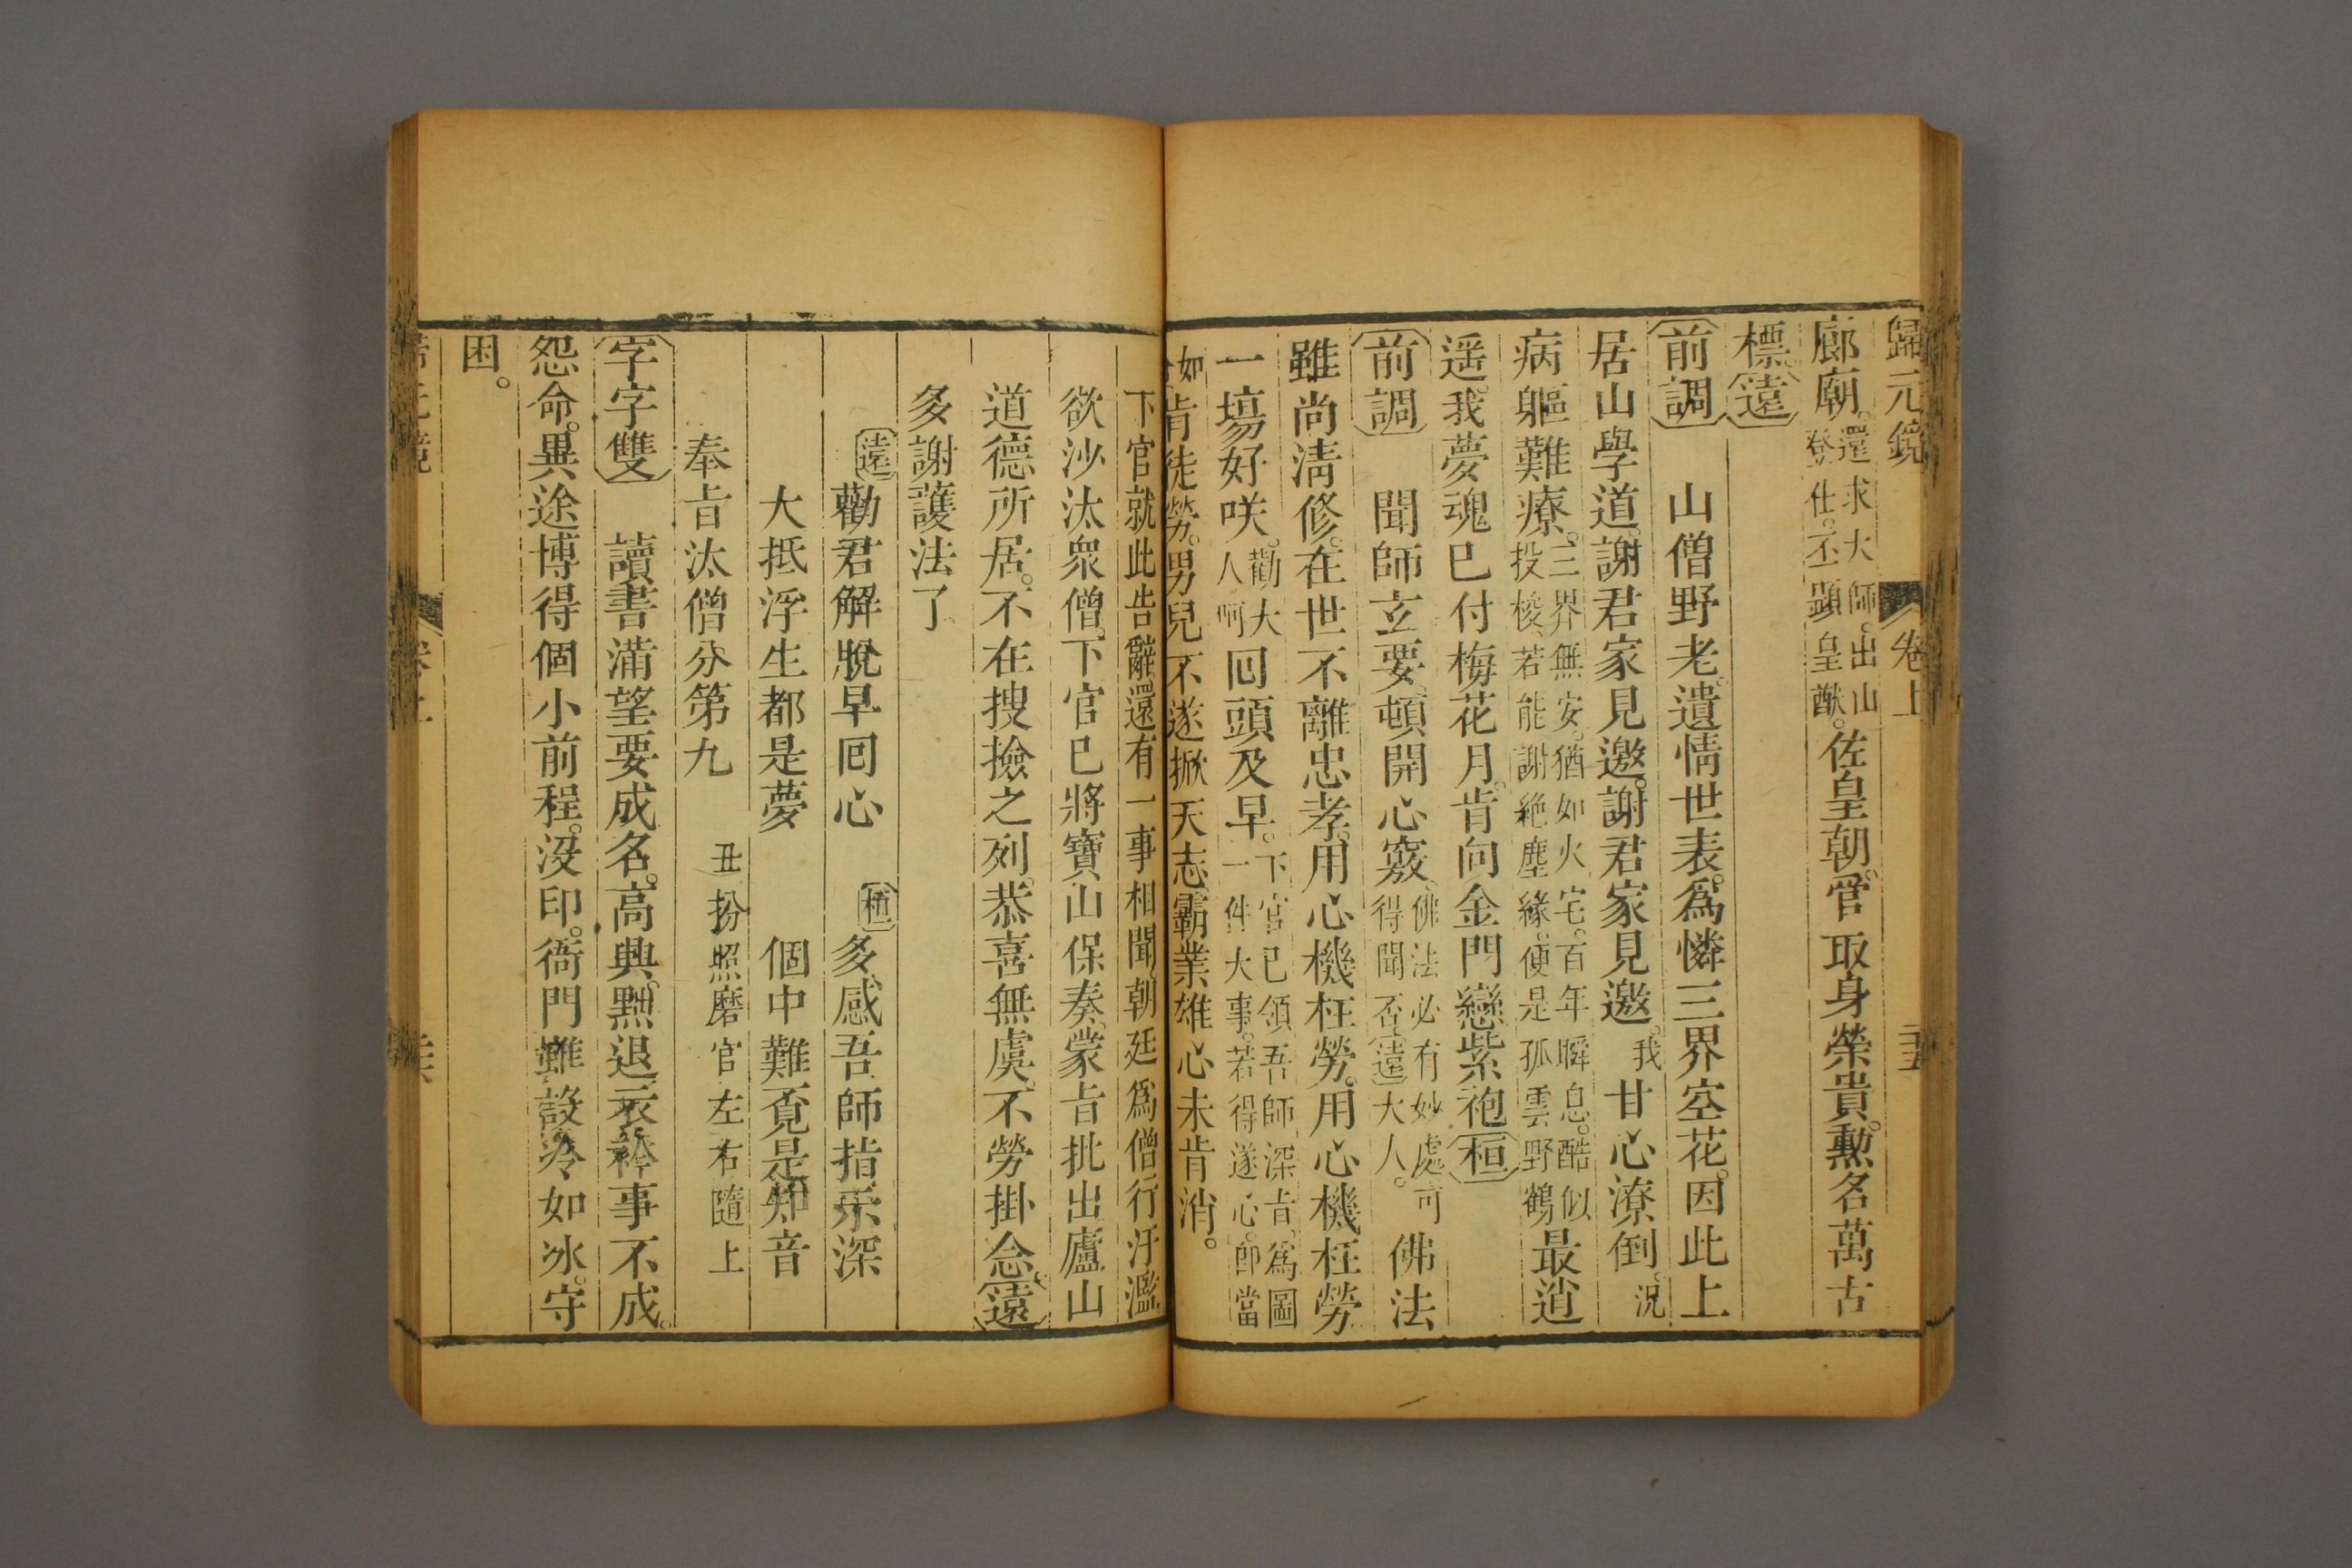 歸元鏡 卷上 二十五
廊廟。還求大師。出山登仕。丕顯皇猷。佐皇朝。管取身榮貴。勳名萬古
標。遠
前調 山僧野老。遺情世表。爲憐三界空花。因此上
居山學道。謝君家見邀。謝君家見邀。我甘心潦倒。況
病軀難療。三界無安。猶如火宅。百年瞬息。酷似投梭、若能謝絶塵緣。便是孤雲野鶴最逍
遥。我夢魂已付梅花月。肯向金門戀紫袍桓
前調 聞師玄要。頓開心竅。佛法必有妙處可得聞否。遠大人。佛法
雖尚淸修。在世不離忠孝。用心機枉勞。用心機枉勞
一塲好咲。勸大人呵回頭及早。下官已領吾師深旨、爲圖一件大事。若得遂心。卽當
如肯徒勞。男兒不遂掀天志霸業雄心未肯消。
下官就此告辭還有一事相聞、朝廷爲僧行汙濫
欲沙汰衆僧。下官已將寶山保奏、蒙旨批出廬山
道德所居。不在搜撿之列。恭喜無虞。不勞掛念。遠
多謝護法了
遠勸君解脫早回心 桓多感吾師指示深
大抵浮生都是夢 個中難覓是知音
奉旨汰僧分第九 丑扮照磨官左右隨上
字字雙 讀書滿望要成名。高興。黜退衣衿事不成。
怨命。異途博得個小前程。沒印。衙門雖設冷如冰。守
困。